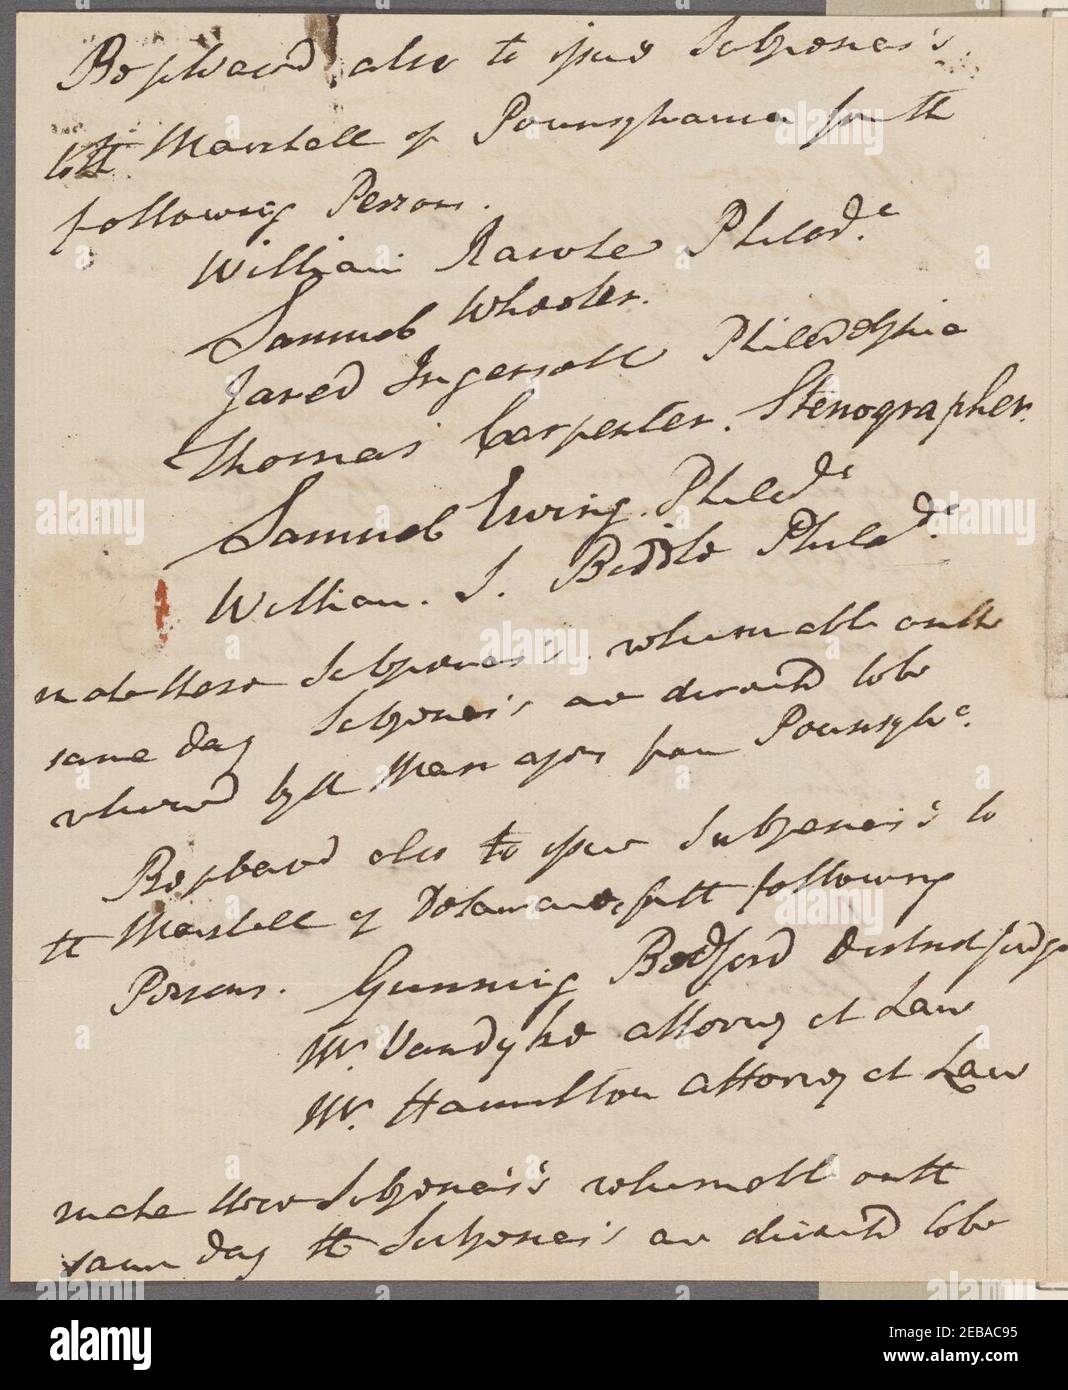 Be pleased also to issue Subpoenas's
to the Marshall of Pennsylvania for the
following Persons.
William Rawle Philad.a
Samuel Wheeler.
Jared Ingersoll Philadelphia
Thomas Carpenter. Stenographer.
Samuel Ewing. Philad.a
William. S. Biddle Philad.a
make these Subpoenas's returnable on the
same day Subpoenas's are directed to be
returned by the Managers from Pennsylv.a
Be pleased also to issue Subpoenas's to
the Marshall of Delaware, for the following
Persons. Gunning Bedford District Judge
Mr. Vandyke attorney at Law
Mr. Hamilton attorney at Law
make these Subpoenas's returnable on the
same day the Subpoenas's are directed to be
alamy
Image ID: 2EBAC95
www.alamy.com